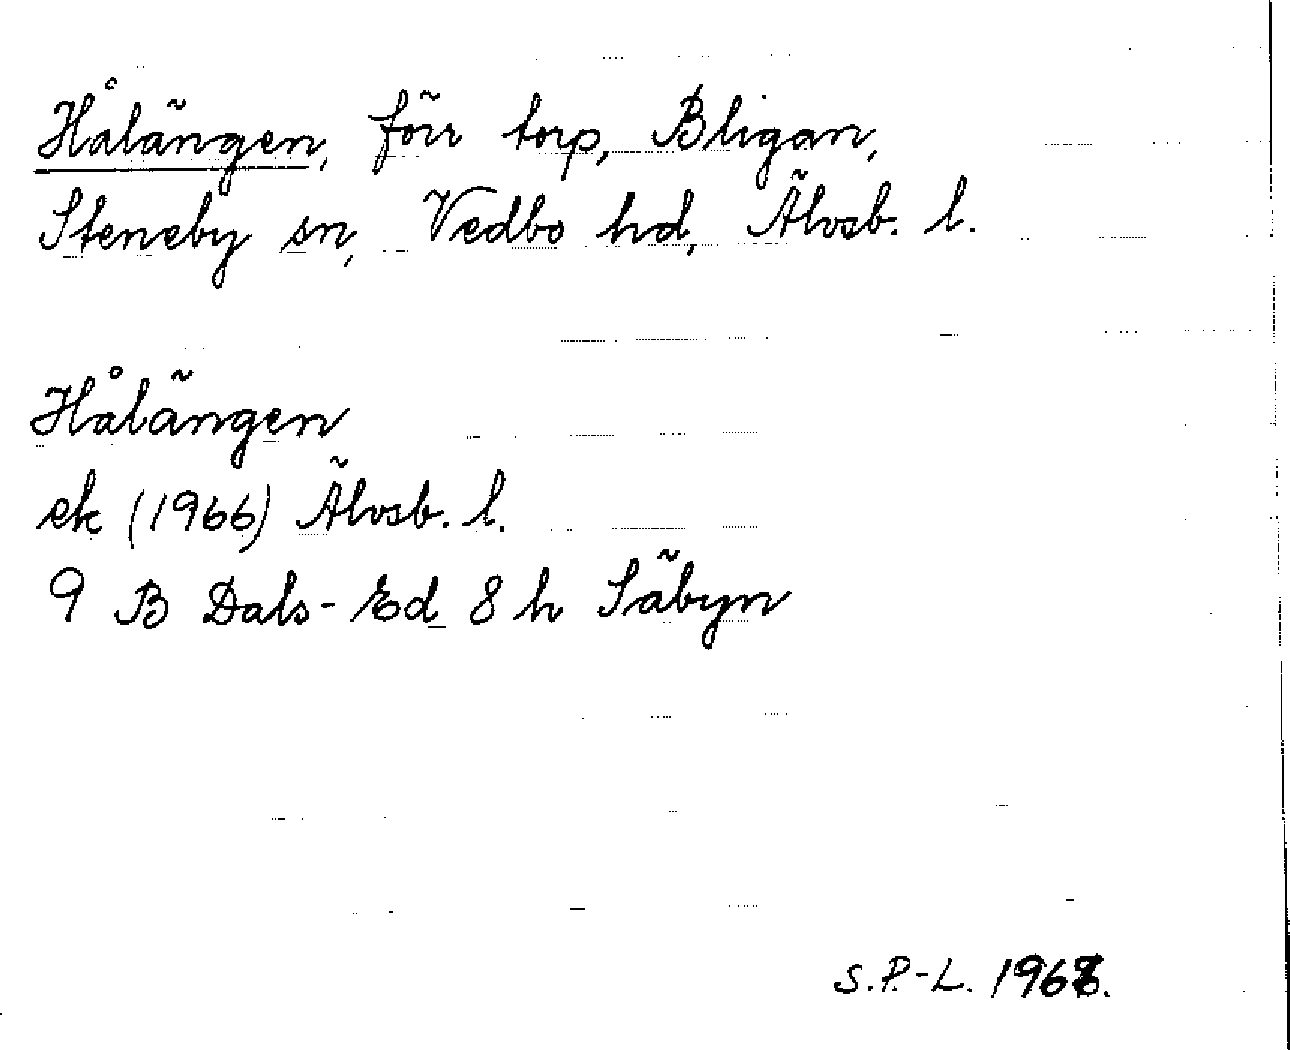 Hålängen, förr torp, Bligan,
Steneby sn, Vedbo hd, Älvsb. l.
Hålängen
ek (1966) Älvsb. l.
9 B Dals-Ed 8 h Säbyn
S.P.-L. 1968.